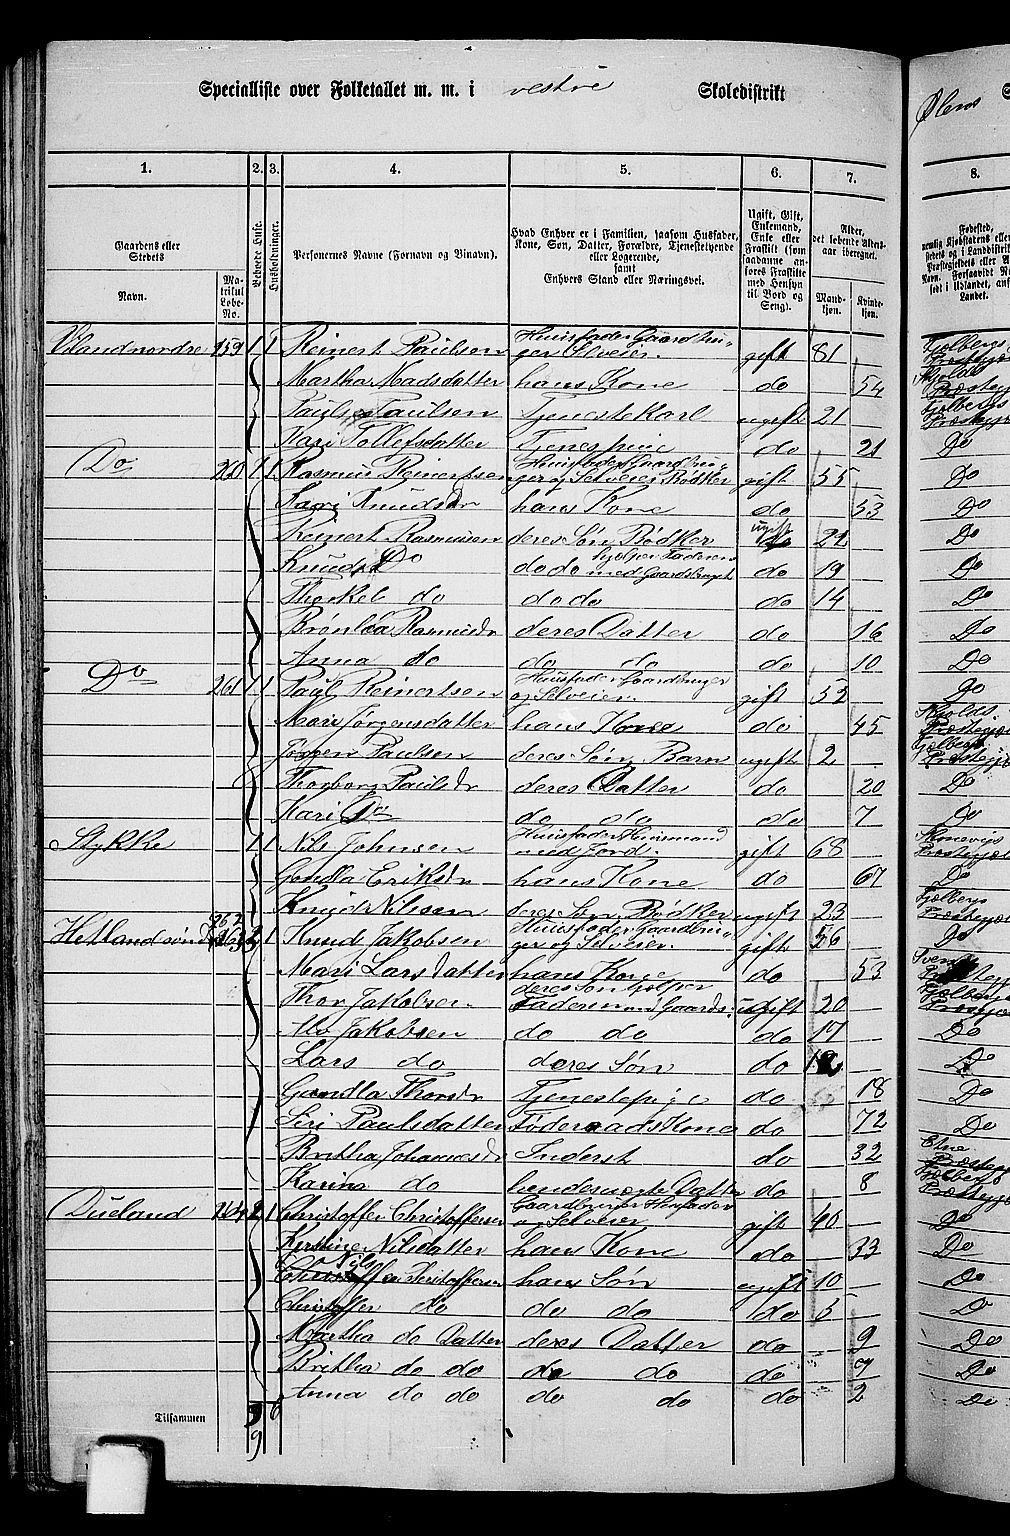 Specialliste over Folketallet m. m. i vestre Skoledistrikt
Ølens S
1. 2. 3. 4. 5. 6. 7. 8.
Gaardens eller Stedets
Navn.
Matrikul Løbe-No.
Beboede Huse.
Husholdninger.
Personernes Navne (Fornavn og Binavn).
Hvad Enhver er i Familien, saasom Husfader, Kone, Søn, Datter, Forældre, Tjenestetyende eller Logerende, samt Enhvers Stand eller Næringsvei.
Ugift, Gift, Enkemand, Enke eller Fraskilt (som saadanne anføres Fraskilte med Hensyn til Bord og Seng).
Alder, det løbende Aldersaar iberegnet.
Mandkjøn. Kvindekjøn.
Fødested,
Vilandnordre 259 1 1 Reinert Paulsen Huusfader Gaardbruger Selveier. gift 81
Martha Madsdatter hans Kone do 54
Paul Paulsen Tjenestekarl ugift 21
Kari Tollefsdatter Tjenestpige do 21 Do
Do 260 1 1 Rasmus Reinertsen Huusfader Gaardbruger og Selveier Bødker gift 55 Do
Kari Knudsdr hans Kone do 53 Do
Reinert Rasmusen deres Søn Bødker ugift 22 Do
Knud Do do do hjelper Faderen med Gaardsbruget do 19 Do
Thorkel do do do do 14 Do
Brønlea Rasmusdr deres Datter do 16 Do
Anna do do do do 10 Do
Do 261 1 1 Paul Reinertsen Huusfader Gaardbruger og Selveier. gift 52 Do
Mari Jørgensdatter hans Kone do 45
Jørgen Paulsen deres Søn Barn ugift 2
Thorborg Paulsdr deres Datter do 20 Do
Kari Do do do do 7 Do
Stykke 1 1 Nils Johnsen Huusfader Huusmand med Jord. gift 68
Gondla Eriksdr hans Kone do 67 Do
Knud Nilssen deres Søn Bødker ugift 23
Hetland søndre 262 263 2 1 Knud Jakobsen Huusfader Gaardbruger og Selveier. gift 56 Do
Mari Larsdatter hans Kone do 53
Thor Jakobsen deres Søn hjelper Faderen med Gaards. ugift 20
Jakobsen do do do 17 Do
Lars do deres Søn do 12 Do
Gondla Thorsdr Tjenestepige do 18 Do
Siri Paulsdatter Føderaadskone do 72 Do
Britha Johannesdr Inderst do 32
Karina do hendes uægte Datter do 8
Dueland 264 2 1 Christoffer Christoffersen Gaardbruger Husfader og Selveier gift 40 Do
Kirstine Nilsdatter hans Kone do 33 Do
Nils Christoffersen hans Søn ugift 10 Do
Christoffer do do do do 5 Do
Martha do Datter deres Datter do 9 Do
Britha do do do do do 7 Do
Anna do do do do do 2 Do
Tilsammen 9 6